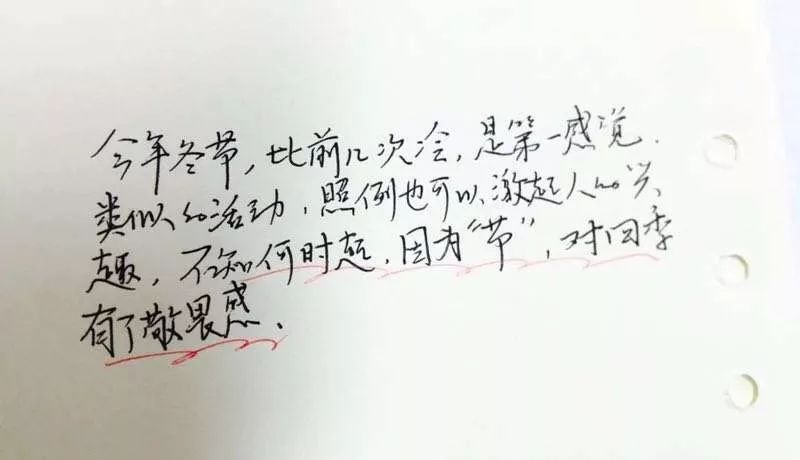 今年冬节,比前几次冷,是第一感觉.
类似的活动,照例也可以激起人的兴
趣,不知何时起,因为“节”,对四季
有了敬畏感.